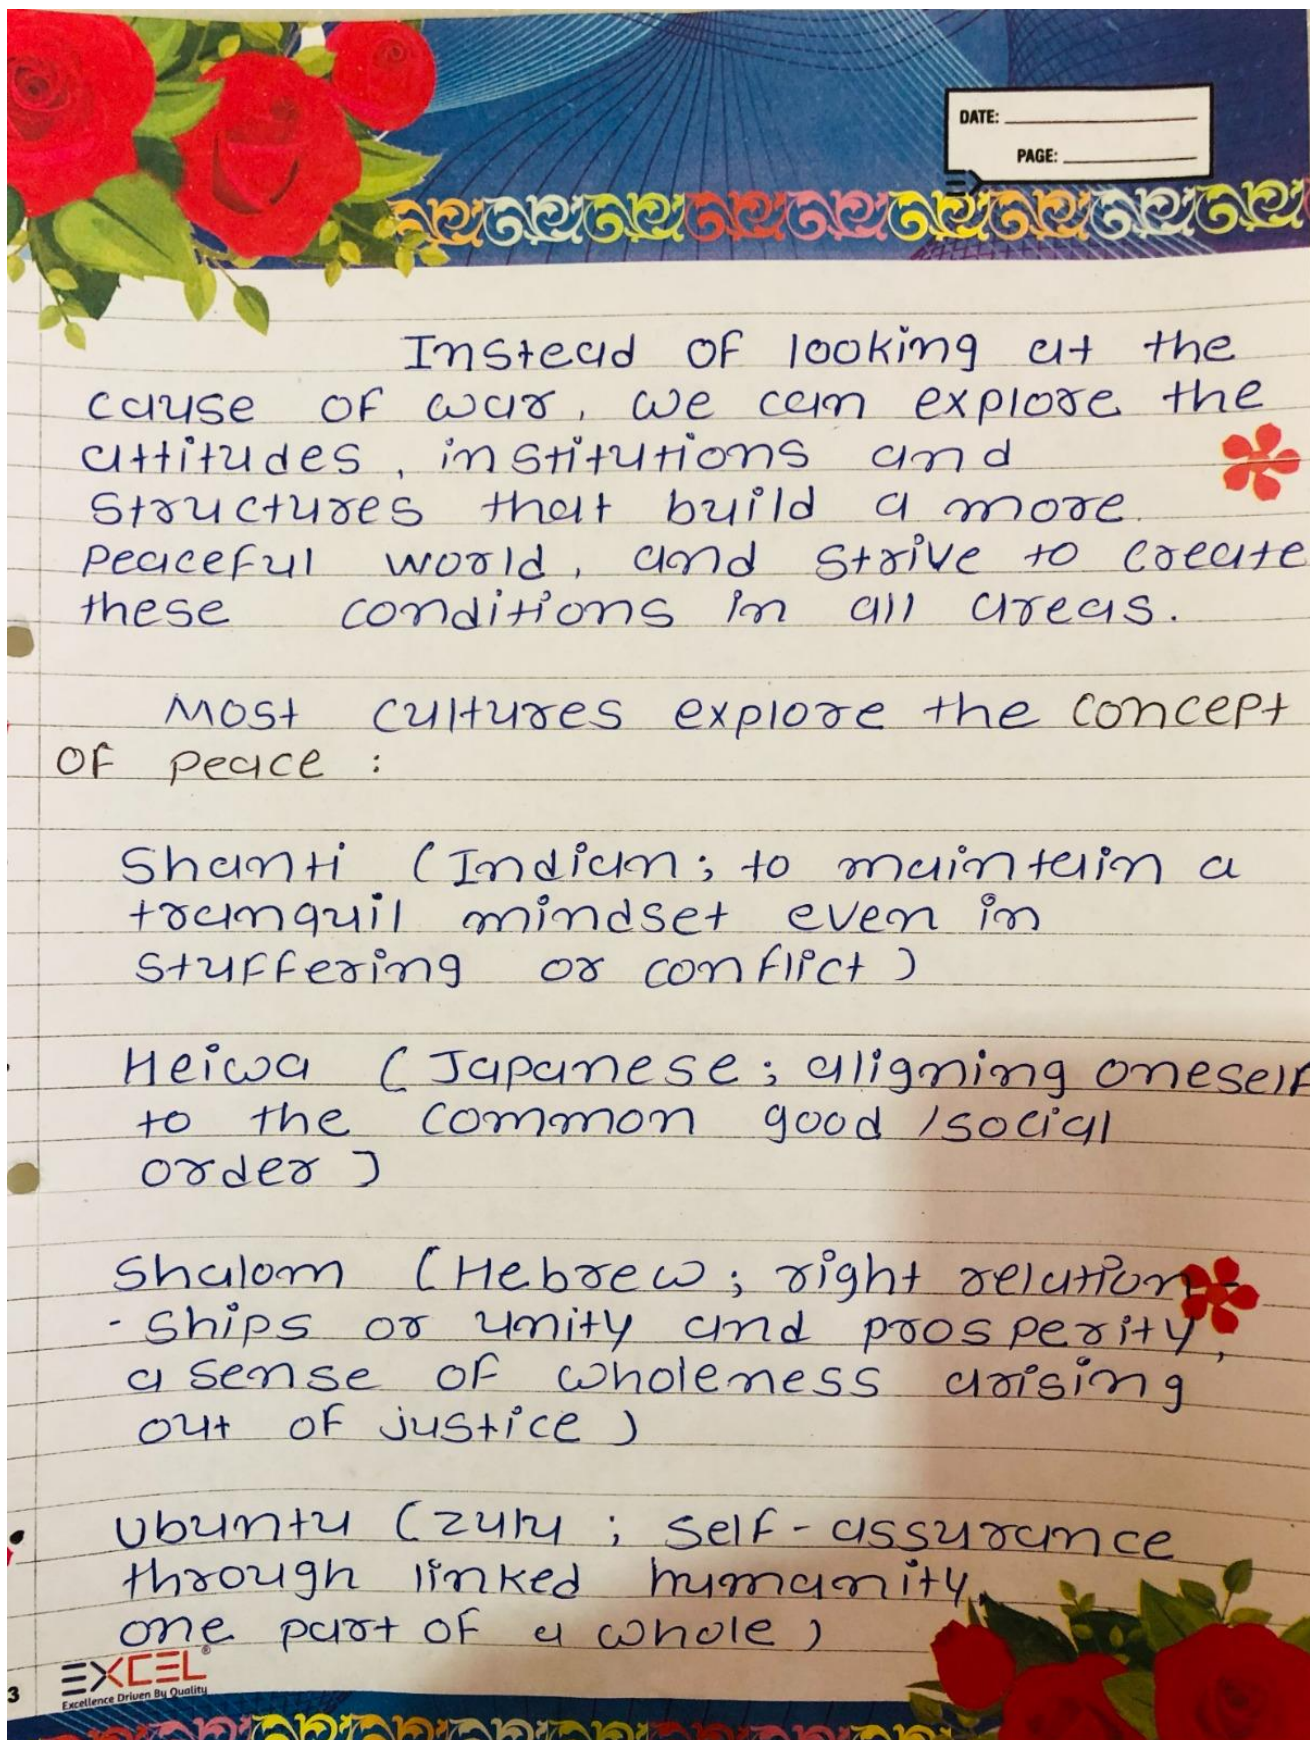 DATE:
PAGE:
Instead of looking at the
cause of war, we can explore the
attitudes, institutions and
structures that build a more
peaceful world, and strive to create
these conditions in all areas.
Most cultures explore the concept
of peace :
Shanti (Indian; to maintain a
tranquil mindset even in
stuffering or conflict)
Heiwa (Japanese; aligning oneself
to the common good /social
order)
Shalom (Hebrew; right relation-
-ships or unity and prosperity,
a sense of wholeness arising
out of justice)
Ubuntu (zulu ; self-assurance
through linked humanity,
one part of a whole)
EXCEL®
Excellence Driven By Quality
3